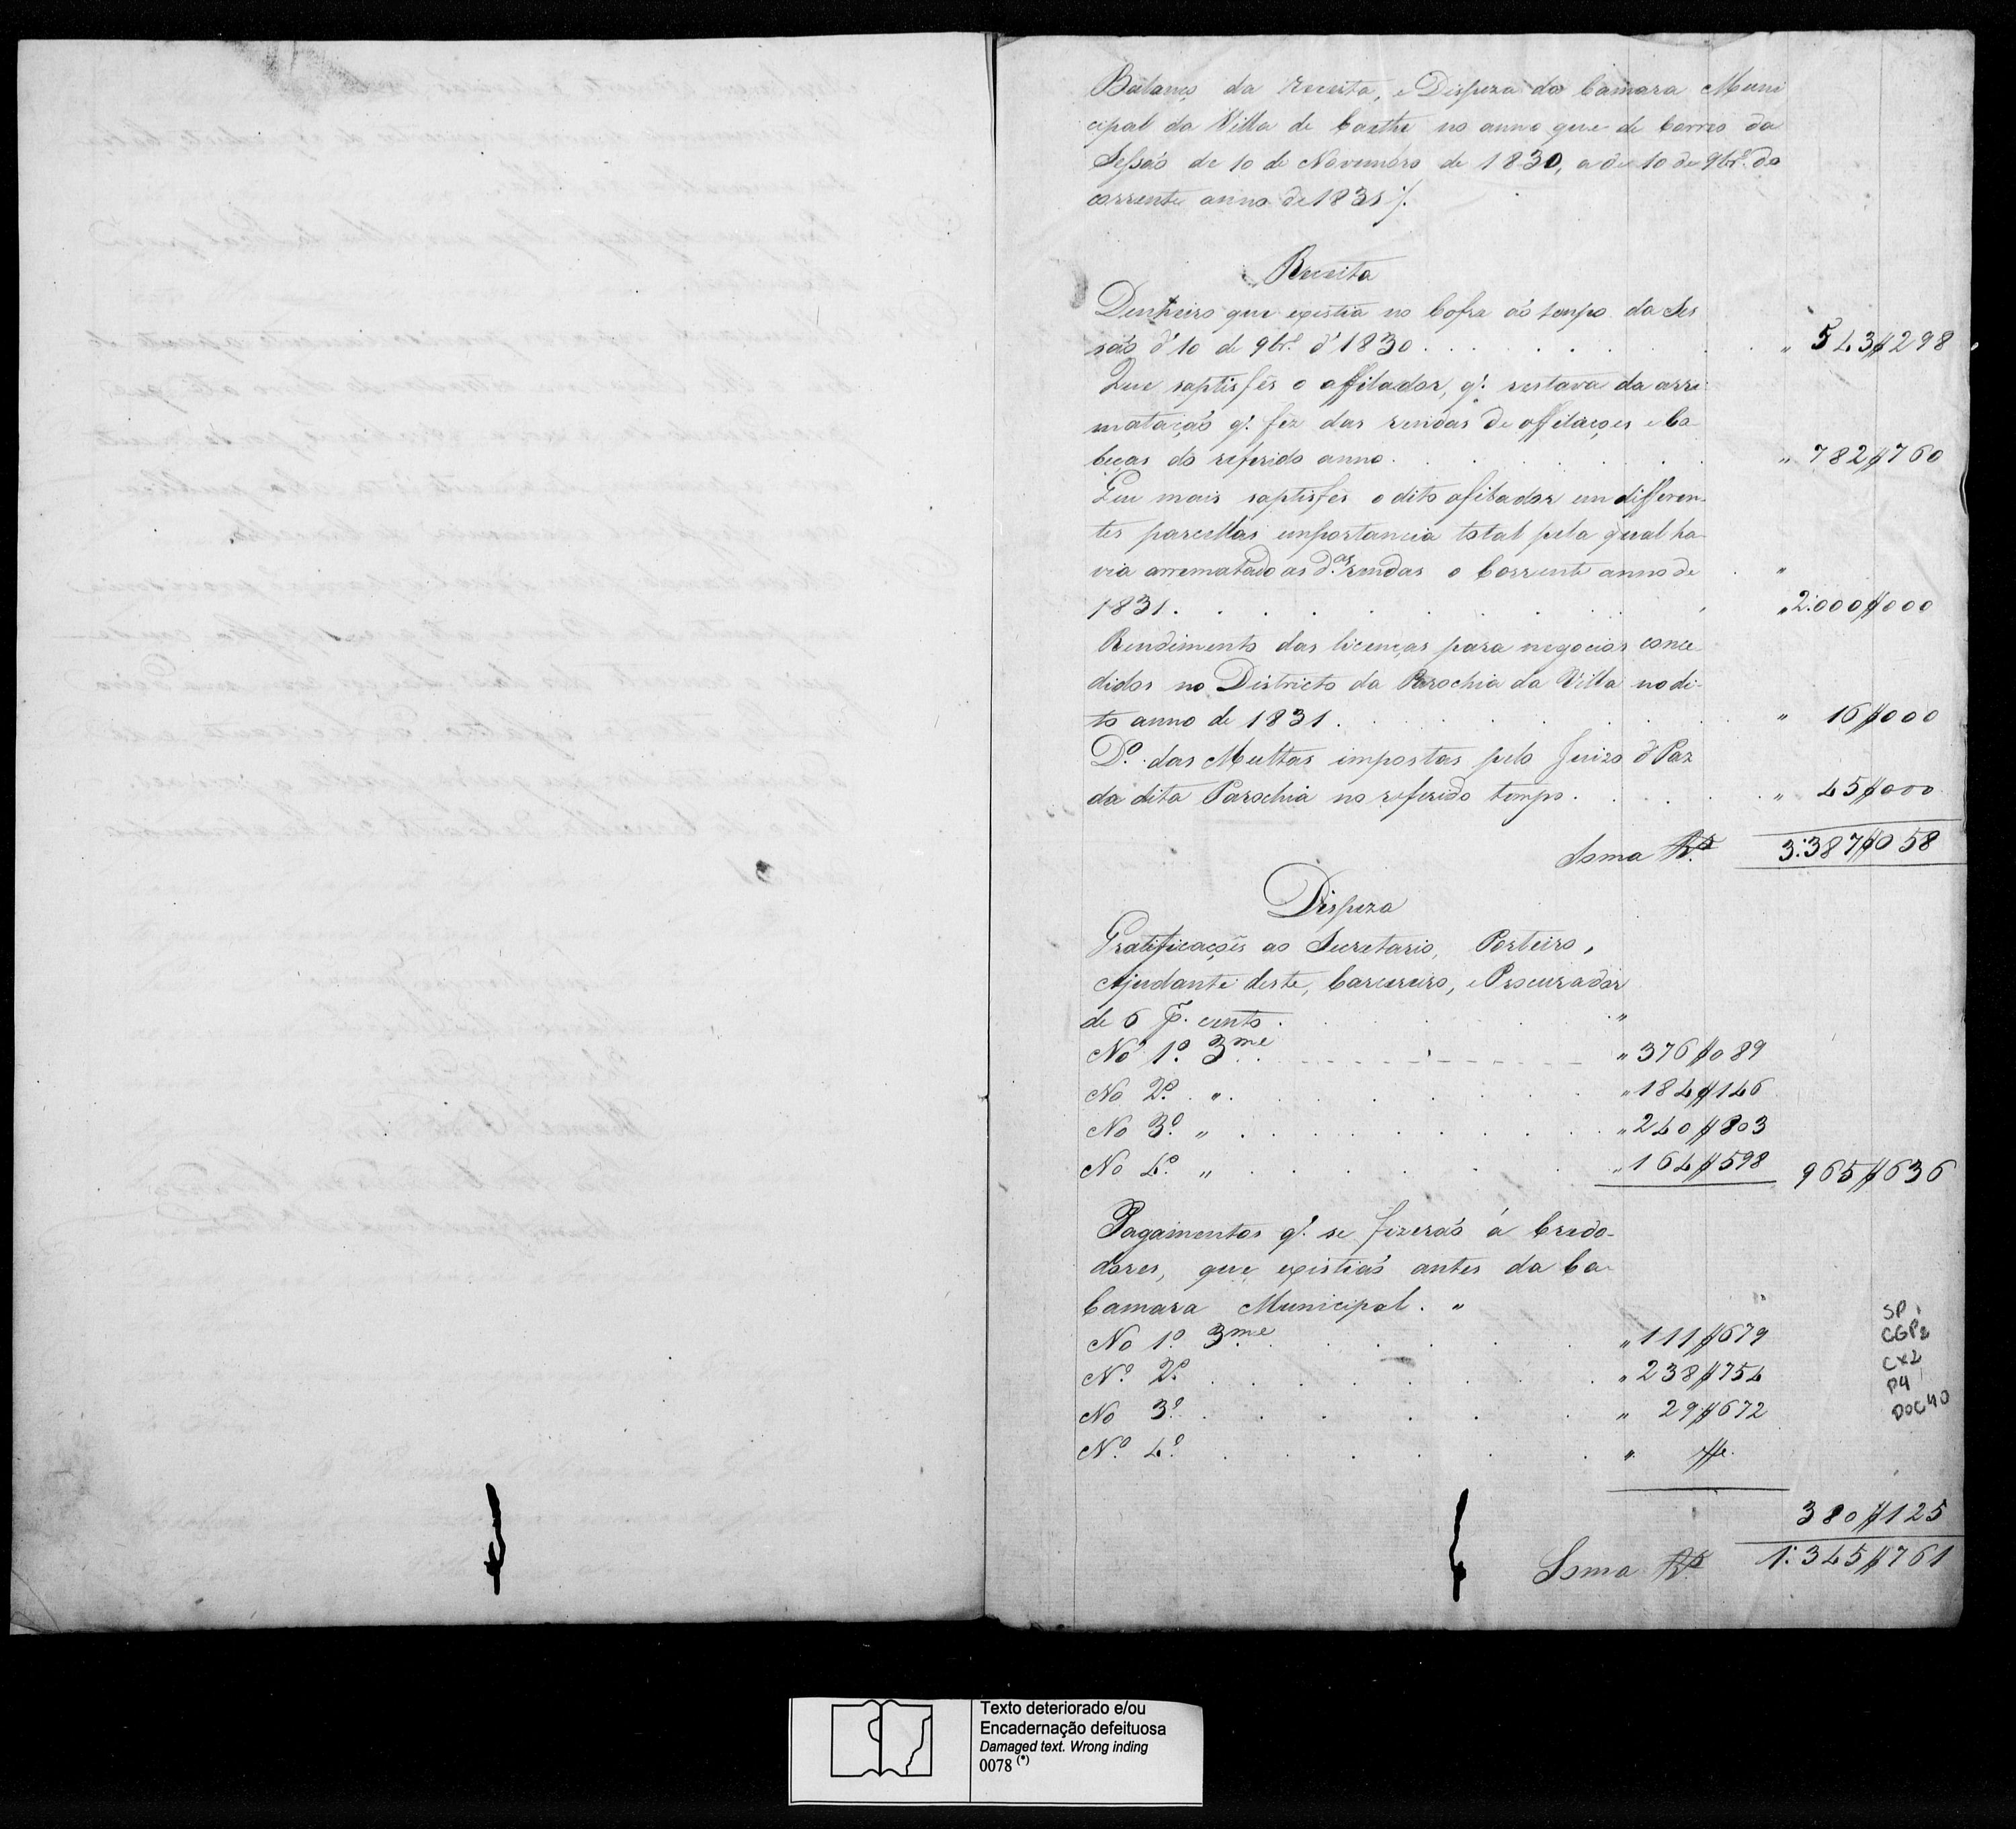 Balanço da Receita, e Dispeza da Camara Muni
cipal da Villa de Caethe no anno que de Correo da
Sessaõ de 10 de Novembro de 1830, a de 10 de 9br.º do
corrente anno de 1831 /.
Receita
Dinheiro que existia no Cofre áo tempo da Ses
saõ d'10 de 9br.º d'1830 . . . . . . „ 543$298
Que saptisfes o affilador, q'. restava da arre
matáçaõ q'. fez das rendas de affilaçoes e Ca
beças do referido anno . . . . . . „ 782$760
Que mais saptisfes o dito afilador em differen-
tes parcellas importancia total pela qual ha-
via arrematado as d.as rendas o Corrente anno de „
1831 . . . . . . . . „ 2:000$000
Rendimento das licenças para negocios conce
didos no Districto da Parochia da Villa no di-
to anno de 1831 . . . . . . „ 16$000
D.º das Multas impostas pelo Juizo d'Paz
da dita Parochia no referido tempo . . . . „ 45$000
Soma Rs. 3:387$058
Dispeza
Gratificaçoẽs ao Secretario, Porteiro,
Ajudante deste, Carcereiro, e Procurador
de 6 p. cento . . . . . „
No 1.º 3me . . . . . . „ 376$089
No 2.º „ . . . . . . „ 184$146
No 3.º „ . . . . . . „ 240$803
No 4.º „ . . . . . . „ 164$598 965$636
Pagamentos q'. se fizeraõ á Credo-
dores, que existiaõ antes da Ca-
Camara Municipal . „ „
No 1.º 3me . . . . . „ 111$679
N.º 2.º . . . . . . „ 238$754
No 3.º . . . . . . „ 29$672
N.º 4.º . . . . . . „ $
380$125
Soma Rs. 1:345$761
SP
CGP2
CX2
P4
DOC40
Texto deteriorado e/ou
Encadernação defeituosa
Damaged text. Wrong inding
0078 (*)